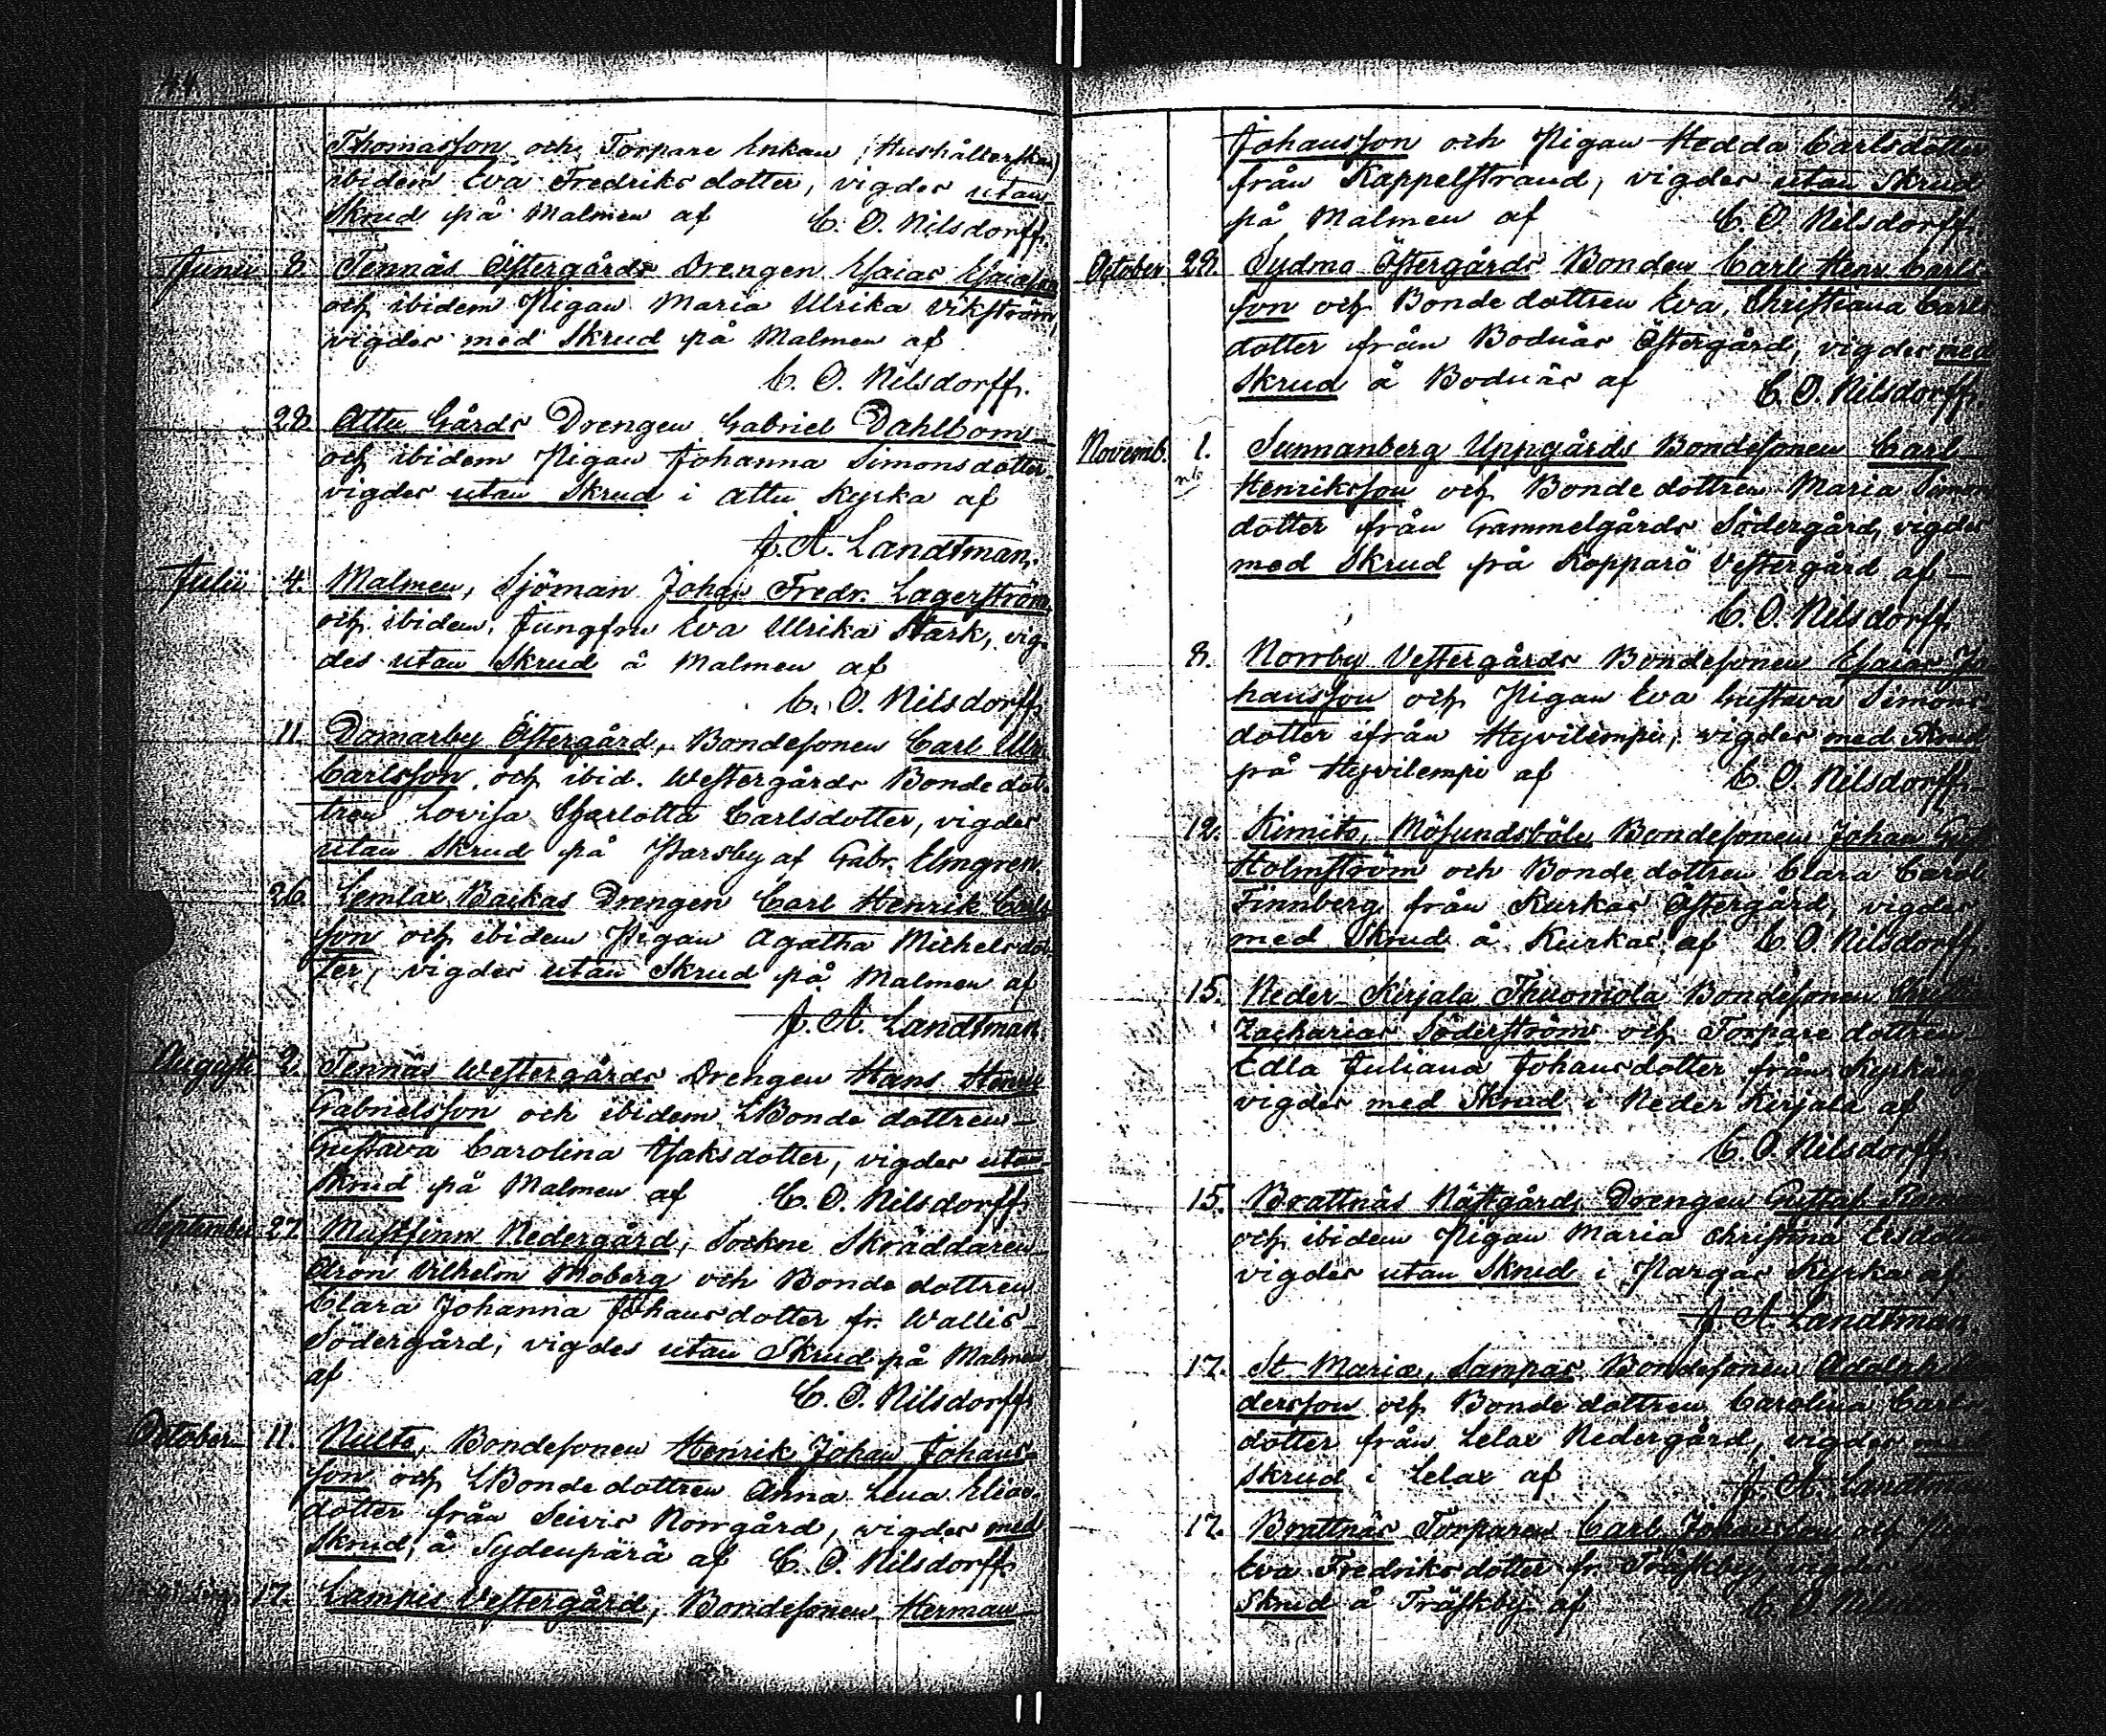 44.
Thomasson och Torpare Enkan (Hushållerskan)
ibidem Eva Fredriksdotter, vigdes utan
Skrud på Malmen af C. O. Nilsdorff.
Junii 8. Tennäs Östergårds Drengen Esaias Esaiasson
och ibidem Pigan Maria Ulrika Vikström,
vigdes med Skrud på Malmen af
C. O. Nilsdorff.
28. Attu Gårds Drengen Gabriel Dahlbom
och ibidem Pigan Johanna Simonsdotter
vigdes utan Skrud i Attu Kyrka af
J. A. Landtman.
Julii 4. Malmen, Sjöman Johan Fredr. Lagerström
och ibidem, Jungfru Eva Ulrika Stark, vig-
des utan Skrud å Malmen af
C. O. Nilsdorff.
11. Domarby Östergård, Bondesonen Carl Ulr.
Carlsson, och ibid. Westergårds Bonde dot-
tren Lovisa Charlotta Carlsdotter, vigdes
utan Skrud på Parsby af Gabr. Elmgren.
26. Lemlax Backas Drengen Carl Henrik Carls-
son och ibidem Pigan Agatha Michelsdot-
ter, vigdes utan Skrud på Malmen af
J. A. Landtman.
Augusti 2. Tennäs Westergårds Drengen Hans Henrik
Gabrielsson och ibidem LBonde dottren
Gustava Carolina Isaksdotter, vigdes utan
Skrud på Malmen af C. O. Nilsdorff.
September 27. Mustfinn Nedergård, Sockne Skräddaren
Aron Vilhelm Moberg och Bonde dottren
Clara Johanna Johansdotter fr. Wallis
Södergård, vigdes utan Skrud på Malmen
af
C. O. Nilsdorff.
October 11. Nulto, Bondesonen Henrik Johan Johans-
son och LBonde dottren Anna Lena Elias-
dotter från Seivis Norrgård, vigdes med
Skrud, å Sydenpärä af C. O. Nilsdorff.
17. Lampis Vestergård, Bondesonen Herman
45
Johansson och Pigan Hedda Carlsdotter
från Kappelstrand, vigdes utan Skrud
på Malmen af C. O. Nilsdorff.
October 28. Sydmo Östergårds Bonden Carl Henr. Carls-
son och Bonde dottren Eva Christiana Carls
dotter från Bodnäs Östergård, vigdes med
Skrud å Bodnäs af C. O. Nilsdorff.
Novemb. 1. Sunnanberg Uppgårds Bondesonen Carl
Henriksson och Bonde dottren Maria Simons
dotter från Gammelgårds Södergård, vigdes
med Skrud på Kopparö Vestergård af
C. O. Nilsdorff.
8. Norrby Vestergårds Bondesonen Esaias Jo
hansson och Pigan Eva Gustava Simons
dotter ifrån Hyvilempi, vigdes med Skrud
på Hyvilempi af C. O. Nilsdorff.
12. Kimito, Mösundsböle Bondesonen Johan Gust
Holmström och Bonde dottren Clara Carol
Finnberg från Kurkas Östergård, vigdes
med Skrud å Kurkas af C. O. Nilsdorff.
15. Neder Kirjala Thuomola Bondesonen
Zacharias Söderström och Torpare dottren
Edla Juliana Johansdotter från
vigdes med Skrud i Neder Kirjala af
C. O. Nilsdorff.
15. Brattnäs Nättgårds Drengen Gustaf
och ibidem Pigan Maria Christina Ersdotter
vigdes utan Skrud i Pargas Kyrka af
J. A. Landtman.
17. St Mariæ, Sampas Bondesonen Adolph
dersson och Bonde dottren Carolina Carls
dotter från Lelax Nedergård, vigdes med
Skrud i Lelax af J. A. Landtman
17. Brattnäs Torparen Carl Johansson och
Eva Fredriksdotter fr. Träskby, vigdes
Skrud å Träskby af C. O. Nils